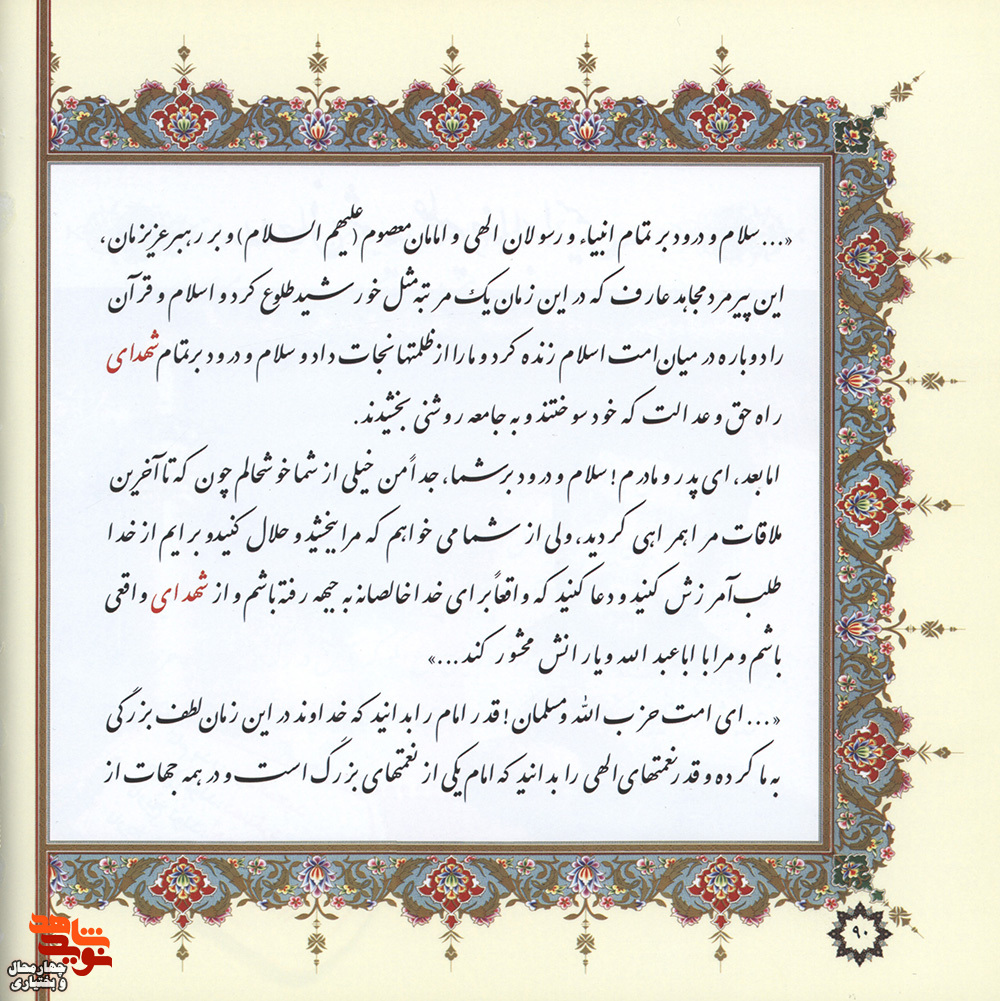 «... سلام و درود بر تمام انبیاء و رسولان الهی و امامان معصوم (علیهم السلام) و بر رهبر عزیزمان،
این پیرمرد مجاهد عارف که در این زمان یک مرتبه مثل خورشید طلوع کرد و اسلام و قرآن
را دوباره در میان امت اسلام زنده کرد و ما را از ظلمتها نجات داد و سلام و درود بر تمام شهدای
راه حق و عدالت که خود سوختند و به جامعه روشنی بخشیدند.
اما بعد، ای پدر و مادرم! سلام و درود بر شما، جداً من خیلی از شما خوشحالم چون که تا آخرین
ملاقات مرا همراهی کردید، ولی از شما می خواهم که مرا ببخشید و حلال کنید و برایم از خدا
طلب آمرزش کنید و دعا کنید که واقعاً برای خدا خالصانه به جبهه رفته باشم و از شهدای واقعی
باشم و مرا با اباعبد الله و یارانش محشور کند...»
«... ای امت حزب الله و مسلمان! قدر امام را بدانید که خداوند در این زمان لطف بزرگی
به ما کرده و قدر نعمتهای الهی را بدانید که امام یکی از نعمتهای بزرگ است و در همه جهات از
۹۰
نوید شاهد
چهارمحال
و بختیاری